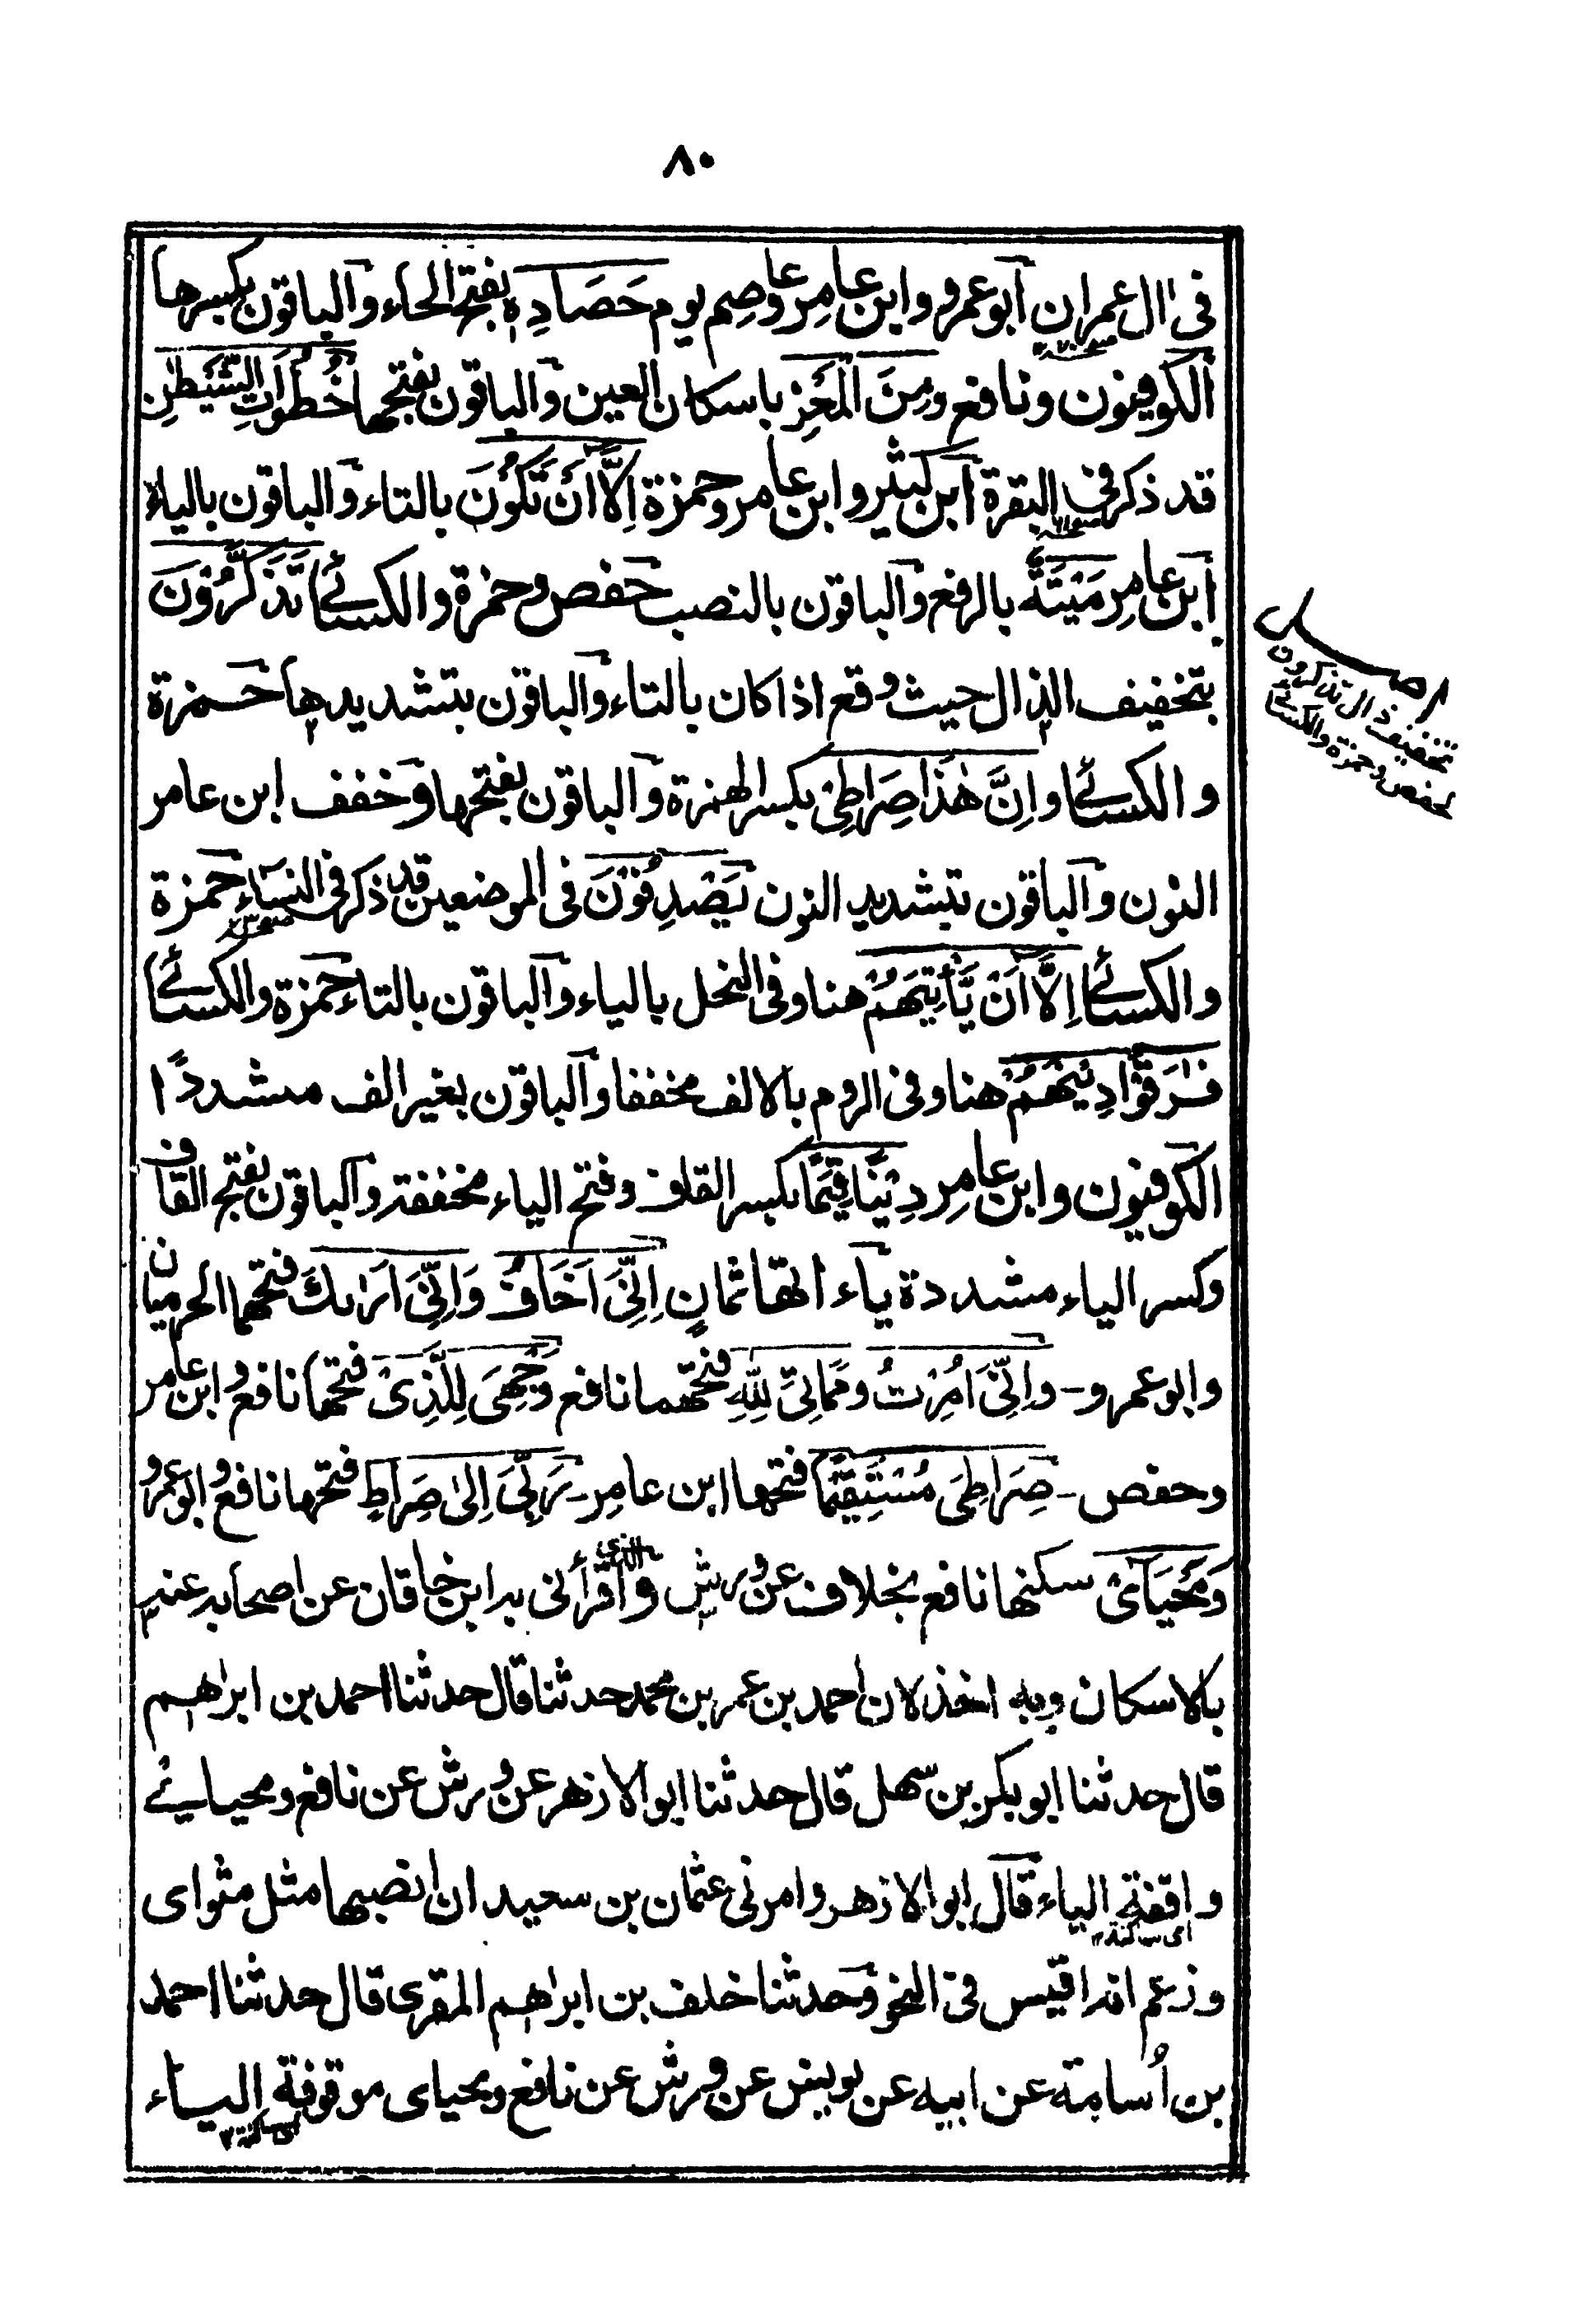 ٨٠
فى اٰل عمران اَبو عمرو وابن عامِر وعاصِم يوم حَصَادِه بفتح الحاء والباقون بكسرها
الكوفيون ونافع ومِنَ الْمَعْزِ باسكان العين والباقون بفتحها خُطُوَاتِ الشَّيْطٰنِ
قد ذكر فى البقرة ابن كثير وابن عامر وحمزة اِلَّآ اَنْ تَكُوْنَ بالتاء والباقون بالياء
ابن عامِر مَيْتَةٌ بالرفع والباقون بالنصب حفص وحمزة والكسائى تَذَكَّرُوْنَ
بتخفيف الذال حيث وقع اذا كان بالتاء والباقون بتشديدها حمزة
والكسائى واِنَّ هٰذَا صِرَاطِىْ بكسر الهمزة والباقون بفتحها وخفف ابن عامر
النون والباقون بتشديد النون يَصْدِفُوْنَ فى الموضعين قد ذكر فى النساء حمزة
والكسائى اِلَّآ اَنْ يَّأْتِيَهُمُ هنا وفى النحل بالياء والباقون بالتاء حمزة والكسائى
فٰرَقُوْا دِيْنَهُمْ هنا وفى الروم بالالف مخففا والباقون بغير الف مشددًا
الكوفيون وابن عامِر دِيْنًا قِيَمًا بكسر القاف وفتح الياء مخففة والباقون بفتح القاف
وكسر الياء مشددة ياء اتها ثمانٍ اِنِّىَ اَخَافُ وَاِنِّىَ اَرٰىكَ فتحهما الحرميان
وابو عمرو - واِنِّىَ اُمِرْتُ ومَمَاتِىَ لِلّٰهِ فتحهما نافع وَجْهِىَ لِلَّذِىْ فتحها نافع وابن عامر
وحفص - صِرَاطِىَ مُسْتَقِيْمًا فتحها ابن عامِر - رَبِّىَ اِلىٰ صِرَاطٍ فتحها نافع وابو عمرو
وَمَحْيَاىْ سكنها نافع بخلاف عن ورش والذى اقرأنى به ابن خاقان عن اصحابه عنه
بالاسكان وبه اخذ لان احمد بن عمر بن محمد حدثنا قال حدثنا احمد بن ابراهيم
قال حدثنا ابو بكر بن سهل قال حدثنا ابو الازهر عن ورش عن نافع ومحياى
واقفة الياء قال ابو الازهر وامرنى عثمان بن سعيد ان انصبها مثل مثواى
اى ساكنة ١٢
وزعم انه اقيس فى النحو وحدثنا خلف بن ابراهيم المقرى قال حدثنا احمد
بن اُسامة عن ابيه عن يونس عن ورش عن نافع ومحياى موقوفة الياء
اى ساكنة ١٢
تخفيف ذال تذكرون
لحفص وحمزة والكسائى